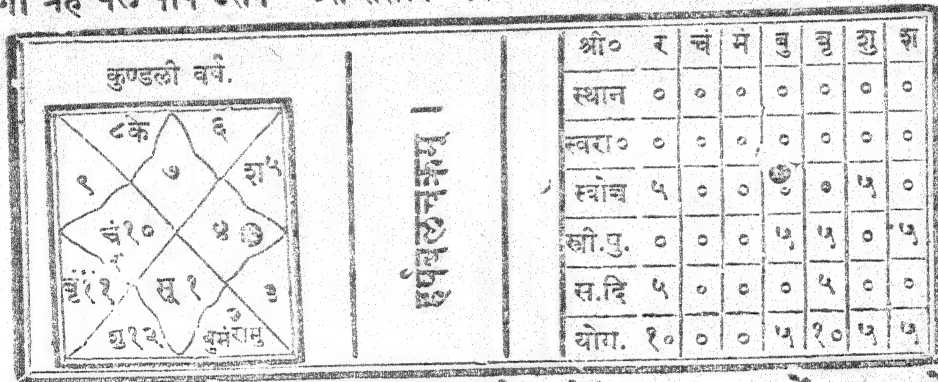 कुण्डली वर्ष.
८के ६
९ ७ श५
चं१० ४
बृं११ सू १ ३
शु१२ बुमंरामु
हर्षबलचक्रम् ।
श्री० र चं मं बु बृ शु श
स्थान ० ० ० ० ० ० ०
स्वरा० ० ० ० ० ० ० ०
स्वोच्च ५ ० ० ० ० ५ ०
स्त्री.पु. ० ० ० ५ ५ ० ५
स.दि ५ ० ० ० ५ ० ०
योग. १० ० ० ५ १० ५ ५